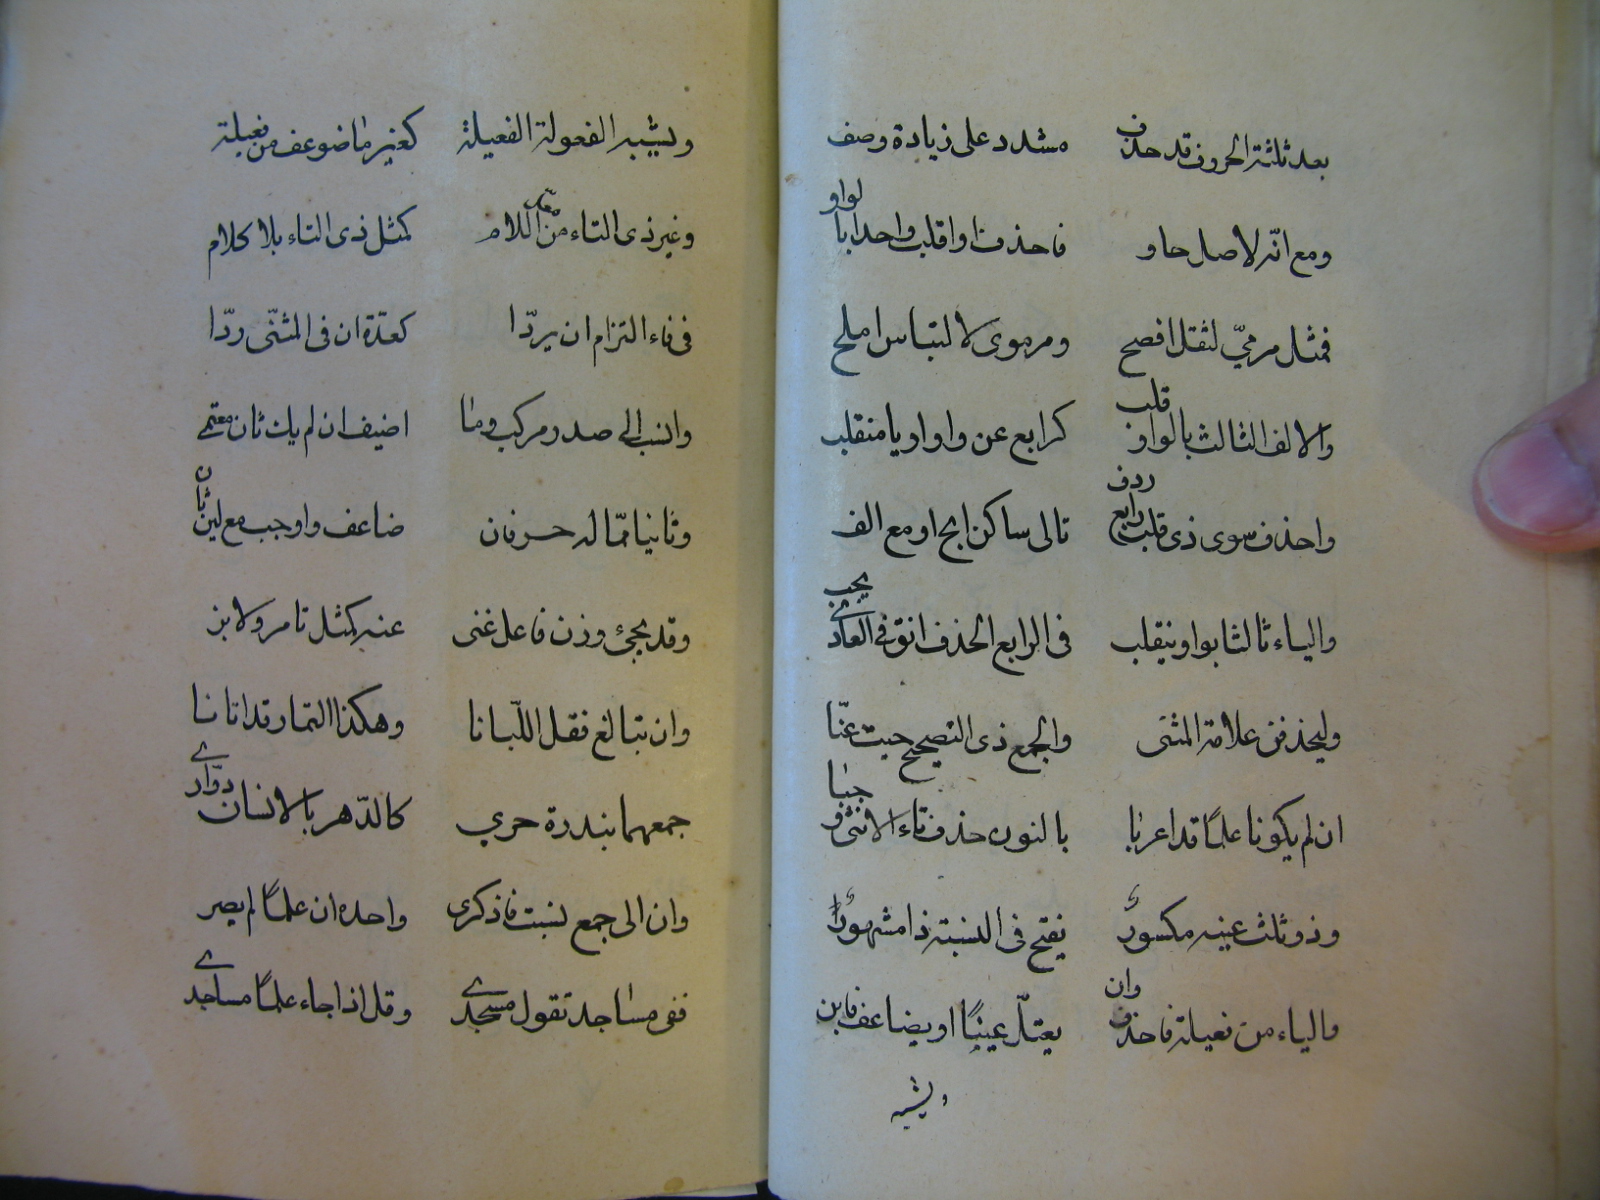 بعد ثلثة الحروف قد حذف مشدد على زيادة وصف
ومع انه لاصل حاو فاحذف او اقلب واحدا بالواو
فمثل مرميّ لثقل افصح ومرموى لالتباس املح
والالف الثالث بالواو قلب كرابع عن واو او يا منقلب
واحذف سوى ذى قلب رابع ردف تالى ساكن او مع الف
والياء ثالثا بواو ينقلب فى الرابع الحذف انق فى العاذى يجب
وليحذفن علامة المثنى والجمع ذى التصحيح حيث عنّا
ان لم يكونا علما قد اعربا بالنون حذف تاء الانثى وجبا
وذو ثلث عينه مكسور يفتح فى النسبة ذا مشهور
والياء من فعيلة فاحذف وان يعتلّ عينًا او يضاعف فابن
ويشبه
ويشبه الفعولة الفعيلة كغير ما ضوعف من فعيلة
وغير ذى التاء من معلّ اللام كمثل ذى التاء بلا كلام
فى فاء التزام ان يردّا كعدّة ان فى المثنّى ردّا
وانسب الى صدر مركب وما اضيف ان لم يك ثان
وثانيا ممّا له حرفان ضاعف واوجب مع لين ثان
وقد يجئ وزن فاعل غنى عنه كمثل تامر ولابن
وان تبالغ فقل اللّبانا وهكذا التمار قد اتانا
جمعهما بندرة حري كالدّهر بالانسان دوّارى
وان الى جمع نسبت فاذكرى واحده ان علمًا لم يصر
ففى مساجد تقول مسجدى وقل اذا جاء علمًا مساجدى